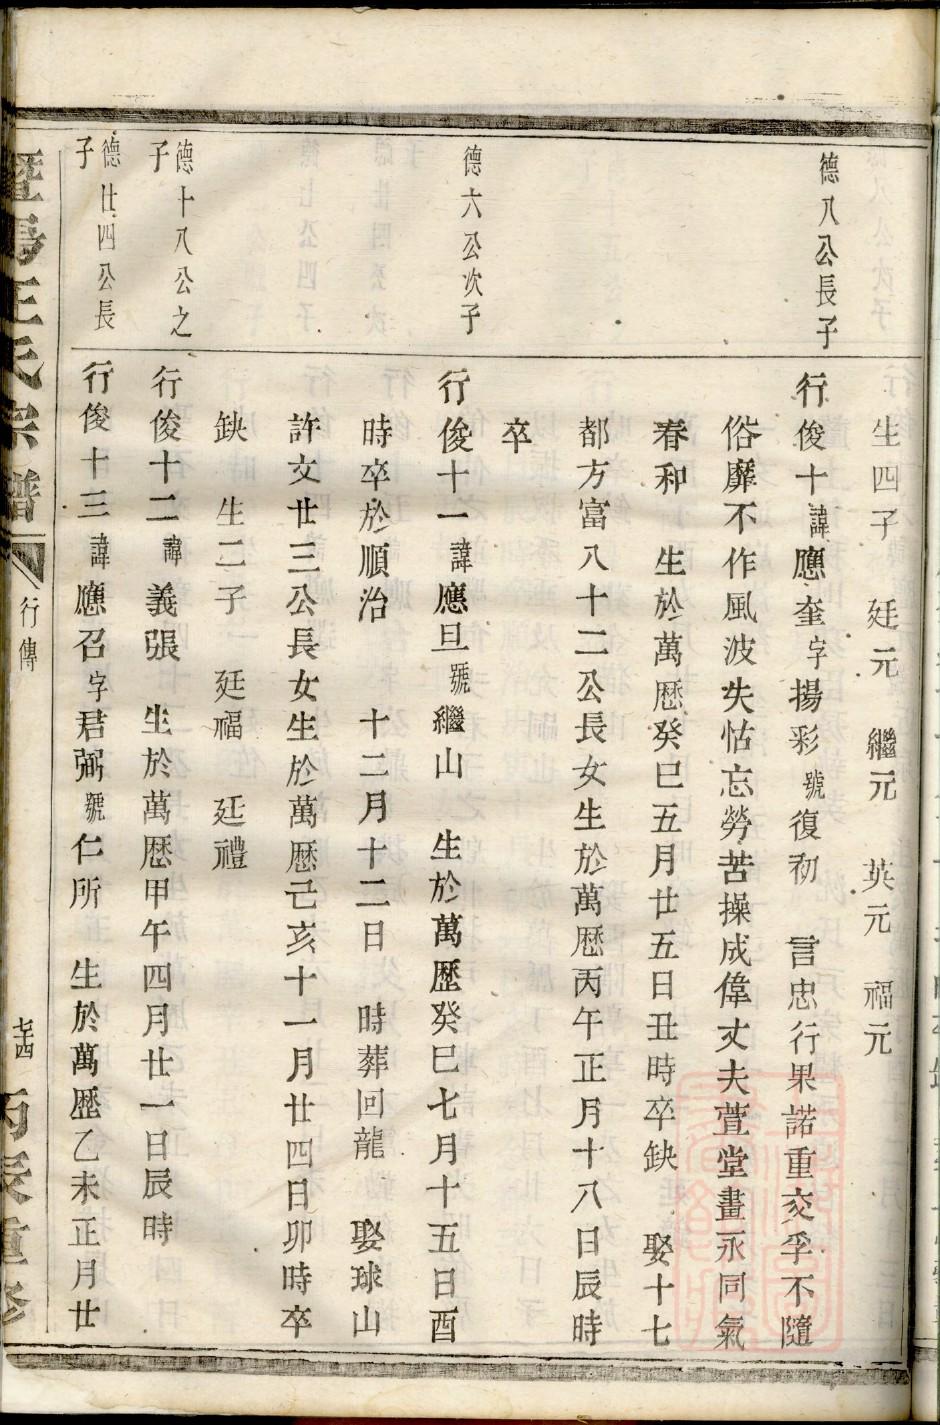 生四子　廷元　繼元　英元　福元
德八公長子
行俊十諱應奎字揚彩號復初　言忠行果諾重交孚不隨
俗靡不作風波失怙忘勞苦操成偉丈夫萱堂晝永同氣
春和　生於萬歷癸巳五月廿五日丑時卒缺　娶十七
都方富八十二公長女生於萬歷丙午正月十八日辰時
卒
德六公次子
行俊十一諱應旦號繼山　生於萬歷癸巳七月十五日酉
時卒於順治　十二月十二日　時葬回龍　娶球山
許文廿三公長女生於萬歷己亥十一月廿四日卯時卒
缺　生二子　廷福　廷禮
德十八公之
子
行俊十二諱義張　生於萬歷甲午四月廿一日辰時
德廿四公長
子
行俊十三諱應召字君弼號仁所　生於萬歷乙未正月廿
暨陽王氏宗譜
行傳
七四
丙辰重修